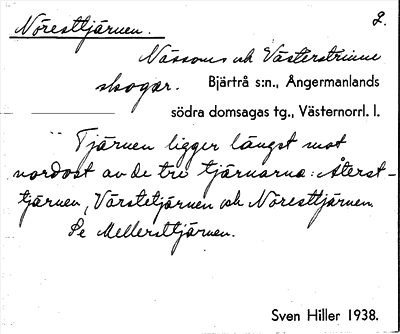 Nöresttjärnen. 2.
Nässoms och Västerstrinne
skogar. Bjärtrå s:n., Ångermanlands
södra domsagas tg., Västernorrl. l.
Tjärnen ligger längst mot
nordost av de tre tjärnarna: Återst-
tjärnen, Värstetjärnen och Nöresttjärnen.
Se Mellersttjärnen.
Sven Hiller 1938.